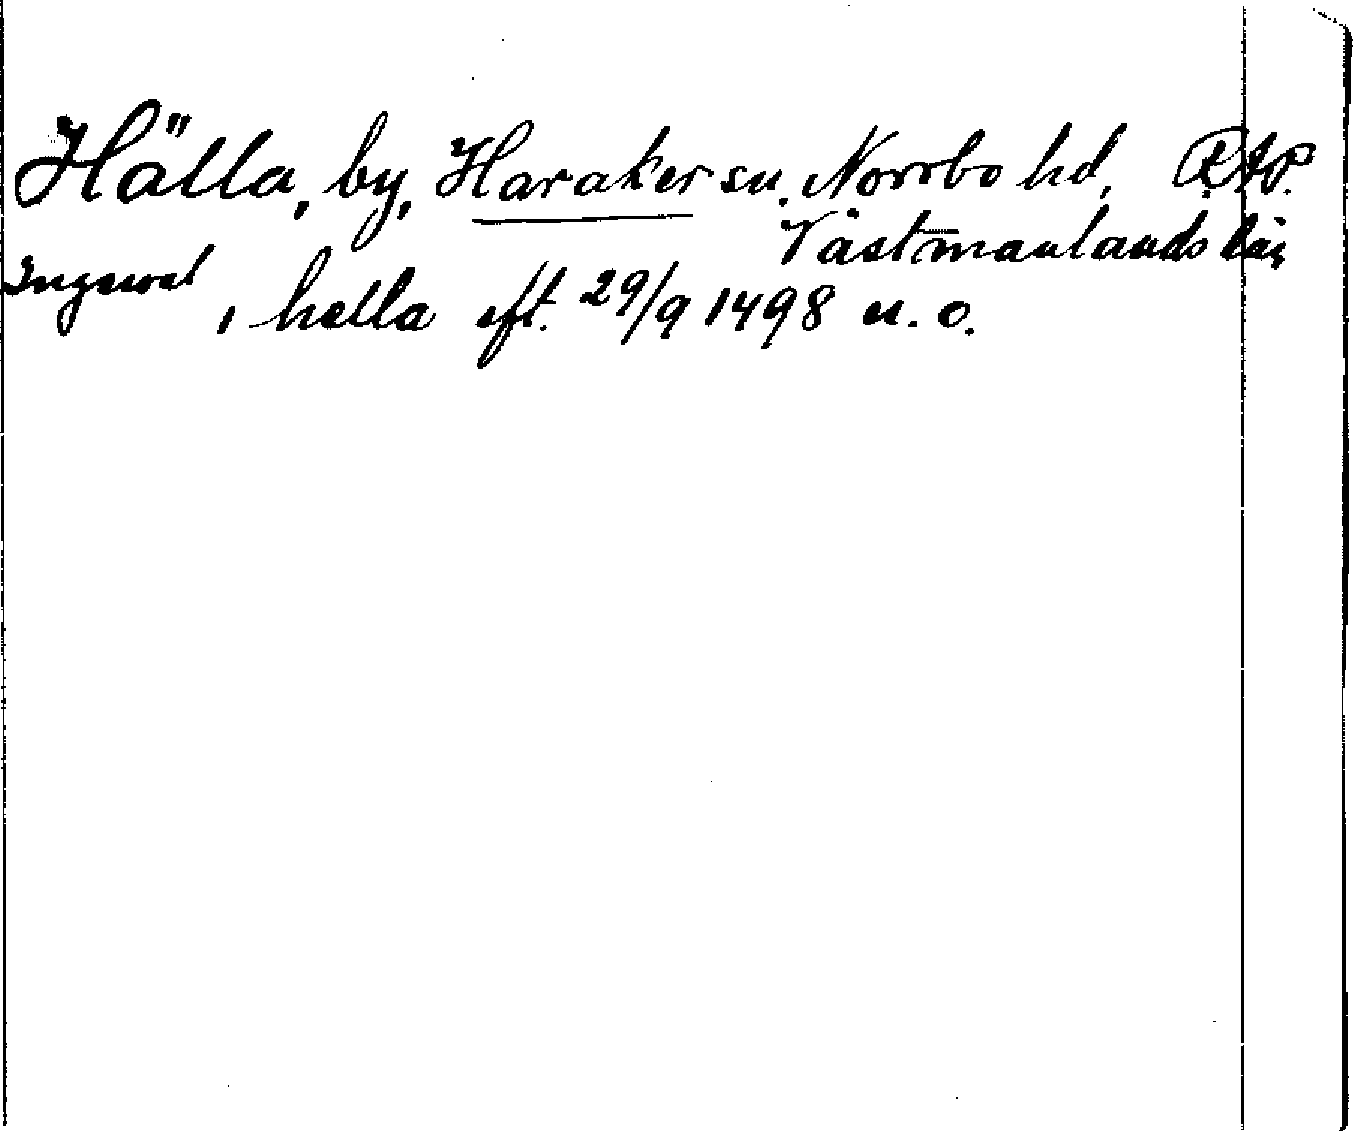 Hälla, by, Haraker sn. Norrbo hd, R.A.P.
Västmanlands län
Ingewal
, i hella eft. 29/9 1498 u. o.